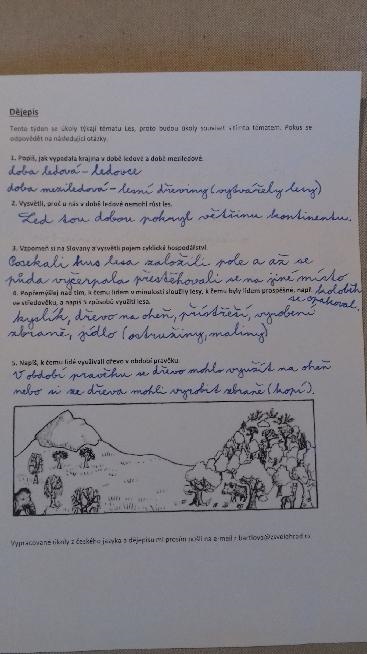 Dějepis
Tento týden se úkoly týkají tématu Les, proto budou úkoly souviset s tímto tématem. Pokus se
odpovědět na následující otázky.
1. Popiš, jak vypadala krajina v době ledové a době meziledové.
doba ledová - ledovce
doba meziledová - lesní dřeviny (vytvářely lesy)
2. Vysvětli, proč u nás v době ledové nemohl růst les.
Led tou dobou pokryl většinu kontinentu.
3. Vzpomeň si na Slovany a vysvětli pojem cyklické hospodářství.
Posekali kus lesa založili pole a až se
půda vyčerpala přestěhovali se na jiné místo
koloběh
4. Popřemýšlej nad tím, k čemu lidem v minulosti sloužily lesy, k čemu byly lidem prospěšné, např.
se opakoval.
ve středověku, a napiš 5 způsobů využití lesa.
kyslík, dřevo na oheň, přístřeší, vyrobení
zbraně, jídlo (ostružiny, maliny)
5. Napiš, k čemu lidé využívali dřevo v období pravěku.
V období pravěku se dřevo mohlo využít na oheň
nebo si ze dřeva mohli vyrobit zbraně (kopí).
Vypracované úkoly z českého jazyka a dějepisu mi prosím pošli na e-mail